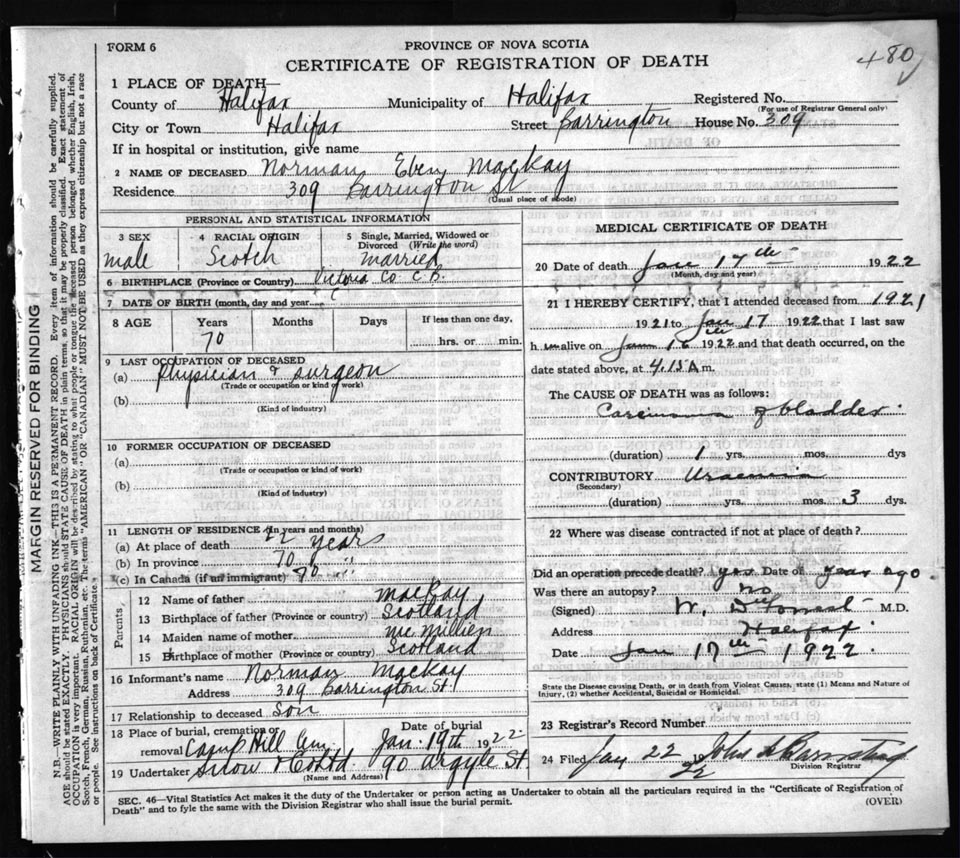 FORM 6
PROVINCE OF NOVA SCOTIA
CERTIFICATE OF REGISTRATION OF DEATH
480
1 PLACE OF DEATH—
County of Halifax Municipality of Halifax Registered No.
(For use of Registrar General only)
City or Town Halifax Street Barrington House No. 309
If in hospital or institution, give name
2 NAME OF DECEASED Norman Eben MacKay
Residence 309 Barrington St
(Usual place of abode)
PERSONAL AND STATISTICAL INFORMATION
3 SEX male
4 RACIAL ORIGIN Scotch
5 Single, Married, Widowed or Divorced (Write the word) Married
6 BIRTHPLACE (Province or Country) Victoria Co C.B.
7 DATE OF BIRTH (month, day and year)
8 AGE Years Months Days If less than one day,
70 hrs. or min.
9 LAST OCCUPATION OF DECEASED
(a) Physician & Surgeon
(Trade or occupation or kind of work)
(b)
(Kind of industry)
10 FORMER OCCUPATION OF DECEASED
(a)
(Trade or occupation or kind of work)
(b)
(Kind of industry)
11 LENGTH OF RESIDENCE (In years and months)
(a) At place of death 22 years
(b) In province 70 "
(c) In Canada (if an immigrant) 70 "
Parents
12 Name of father MacKay
13 Birthplace of father (Province or country) Scotland
14 Maiden name of mother
15 Birthplace of mother (Province or country) Scotland
16 Informant's name Norman MacKay
Address 309 Barrington St.
17 Relationship to deceased Son
18 Place of burial, cremation or removal Camp Hill Cem Date of burial Jan. 19th 1922
19 Undertaker Snow & Co Ltd 90 Argyle St
(Name and Address)
MEDICAL CERTIFICATE OF DEATH
20 Date of death Jan 17th 1922
(Month, day and year)
21 I HEREBY CERTIFY, that I attended deceased from 1921
1921 to Jan 17 1922 that I last saw
h im alive on Jan 16 1922 and that death occurred, on the
date stated above, at 4.15 A m.
The CAUSE OF DEATH was as follows:
Carcinoma of bladder
(duration) 1 yrs. mos. dys
CONTRIBUTORY Uraemia
(Secondary)
(duration) yrs. mos. 3 dys.
22 Where was disease contracted if not at place of death?
Did an operation precede death? yes Date of year ago
Was there an autopsy? no
(Signed) W. M.D.
Address Halifax
Date Jan 17th 1922
State the Disease causing Death, or in death from Violent Causes, state (1) Means and Nature of
Injury, (2) whether Accidental, Suicidal or Homicidal.
23 Registrar's Record Number
24 Filed Jan 22 22 John
Division Registrar
SEC. 46—Vital Statistics Act makes it the duty of the Undertaker or person acting as Undertaker to obtain all the particulars required in the "Certificate of Registration of
Death" and to fyle the same with the Division Registrar who shall issue the burial permit.
(OVER)
MARGIN RESERVED FOR BINDING
N.B.—WRITE PLAINLY WITH UNFADING INK—THIS IS A PERMANENT RECORD. Every item of information should be carefully supplied.
AGE should be stated EXACTLY. PHYSICIANS should STATE CAUSE OF DEATH in plain terms, so that it may be properly classified. Exact statement of
OCCUPATION is very important. RACIAL ORIGIN will be described by stating to what people or tongue the deceased person belonged, whether English, Irish,
Scotch, French, German, Russian, Ruthenian, etc. The terms "AMERICAN" OR "CANADIAN" MUST NOT BE USED as they express citizenship but not a race
or people. See instructions on back of Certificate.